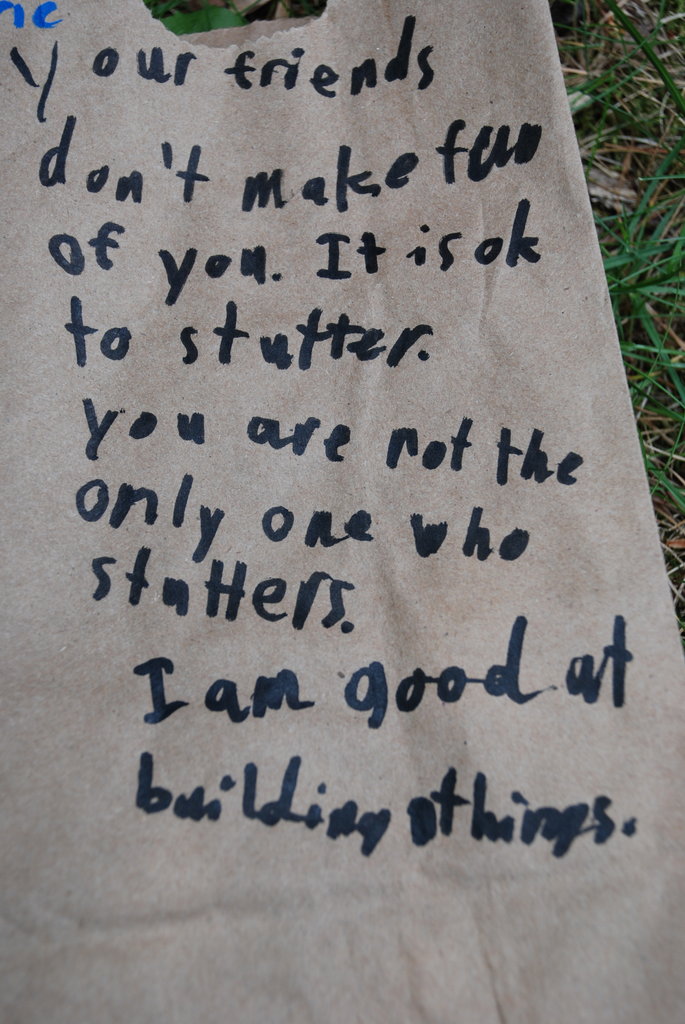 your friends
don't make fun
of you. It is ok
to stutter.
you are not the
only one who
stutters.
I am good at
building things.